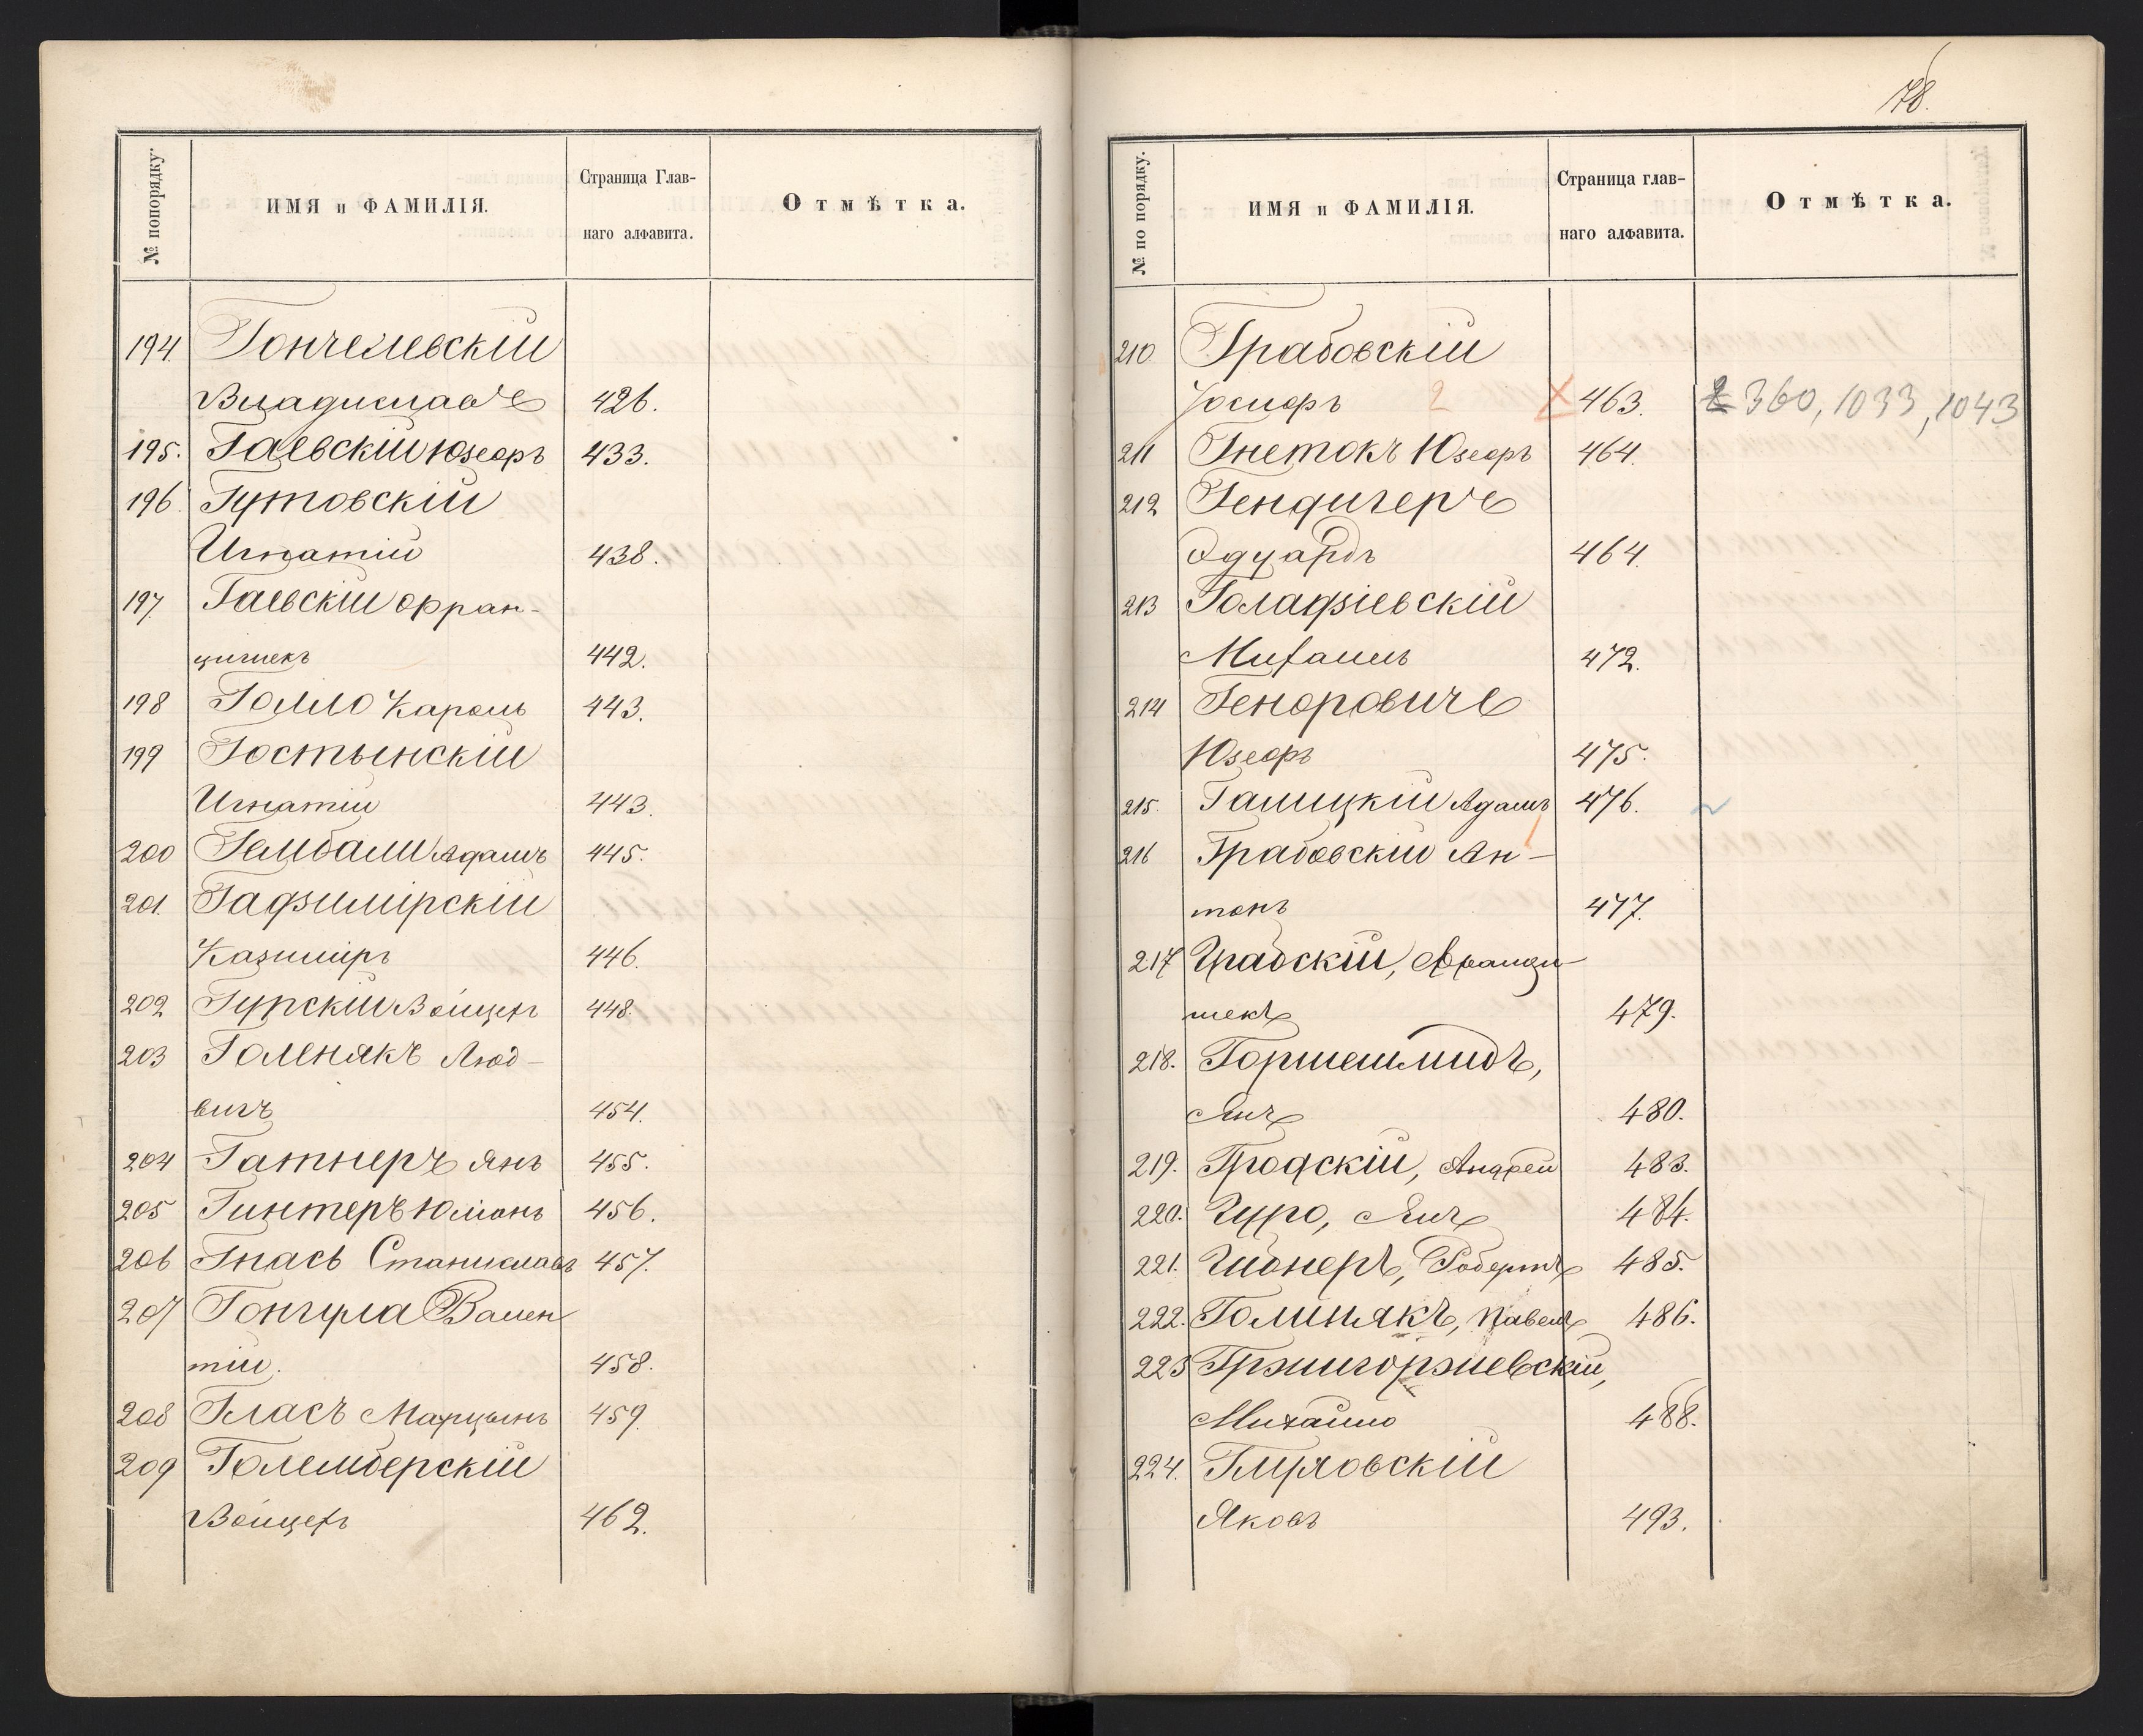 № попорядку.
ИМЯ и ФАМИЛІЯ.
Страница Глав-
наго алфавита.
Отмѣтка.
194. Гончелевскій
Владиславъ 426.
195. Гаевскій Юзефъ 433.
196. Гутовскій
Игнатій 438.
197. Гаевскій Фран-
цишекъ 442.
198 Голло Кароль 443.
199 Гостынскій
Игнатій 443.
200 Гембали Адамъ 445.
201. Гадзимірскій
Казиміръ 446.
202 Гурскій Войцехъ 448.
203 Голенякъ Люд-
вигъ 454.
204 Гатнеръ Янъ 455.
205 Гинтеръ Юліанъ 456.
206 Гнась Станиславъ 457.
207 Гонгула Вален
тій. 458.
208 Гласъ Марцынъ 459.
209 Големберскій
Войцехъ 462.
178.
№ по порядку.
ИМЯ и ФАМИЛІЯ.
Страница глав-
наго алфавита.
Отмѣтка.
210. Грабовскій
Іосифъ 2 х 463. 360, 1033, 1043
211 Гнетокъ Юзефъ 464.
212 Гендигеръ
Эдуардъ 464.
213 Голадзіевскій
Михаилъ 472.
214 Геноровичъ
Юзефъ 475.
215. Галицкій Адамъ 476.
216 Грабовскій Ан-
тонъ 477.
217 Грабскій, Францы-
шекъ 479.
218. Горшешмидъ,
Янъ 480.
219. Гродскій, Андрей 483.
220. Гуро, Янъ 484.
221. Робертъ 485.
222. Голинякъ, Павелъ 486.
223 Гржигоржевскій,
Михайло 488.
224. Глуховскій
Яковъ 493.